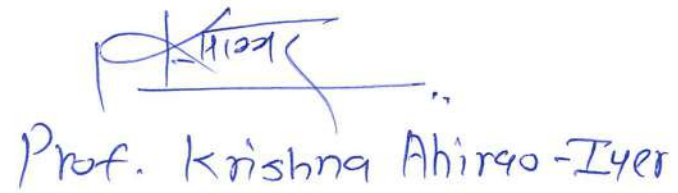 Prof. Krishna Ahirao-Iyer